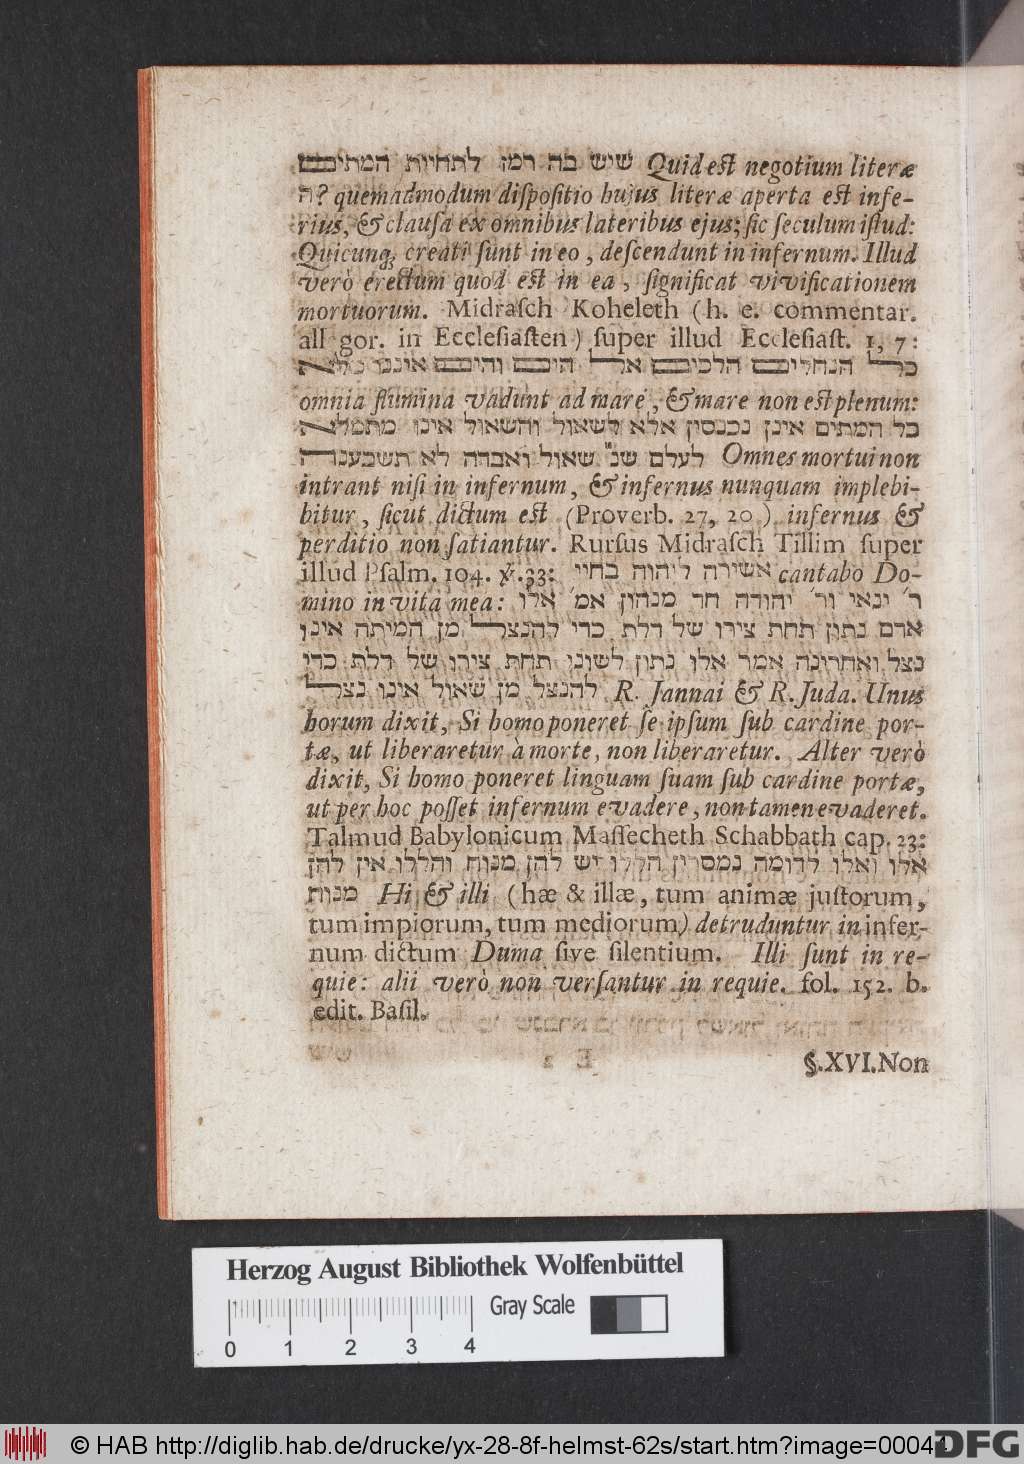 שיש בה רמז לתחיות המתים Quid est negotium literæ
ה? quemadmodum diſpoſitio hujus literæ aperta eſt infe-
rius, & clauſa ex omnibus lateribus ejus; ſic ſeculum iſtud:
Quicunq; creati ſunt in eo, deſcendunt in infernum. Illud
verò erectum quod eſt in ea, ſignificat vivificationem
mortuorum. Midraſch Koheleth (h. e. commentar.
all gor. in Eccleſiaſten) ſuper illud Eccleſiaſt. 1, 7:
כל הנחלים הלכים אל הים והים איננו מלא
omnia flumina vadunt ad mare, & mare non eſt plenum:
כל המתים אינן נכנסין אלא לשאול והשאול אינו מתמלא
לעלם שנ״ שאול ואבדה לא תשבענה Omnes mortui non
intrant niſi in infernum, & infernus nunquam implebi-
bitur, ſicut dictum eſt (Proverb. 27, 20.) infernus &
perditio non ſatiantur. Rurſus Midraſch Tillim ſuper
illud Pſalm. 104. ℣. 33: אשירה ליהוה בחיי cantabo Do-
mino in vita mea: ר׳ ינאי ור׳ יהודה חד מנהון אמ׳ אלו
אדם נתון תחת צירו של דלת כדי להנצל מן המיתה אינו
נצל ואחרינה אמר אלו נתון לשונו תחת צירו של דלת כדי
להנצל מן שאול אינו נצל R. Jannai & R. Juda. Unus
horum dixit, Si homo poneret ſe ipſum ſub cardine por-
tæ, ut liberaretur à morte, non liberaretur. Alter verò
dixit, Si homo poneret linguam ſuam ſub cardine portæ,
ut per hoc poſſet infernum evadere, non tamen evaderet.
Talmud Babylonicum Maſſecheth Schabbath cap. 23:
אלו ואלו לדומה נמסרין הללו יש להן מנוח והללו אין להן
מנוח Hi & illi (hæ & illæ, tum animæ juſtorum,
tum impiorum, tum mediorum) detruduntur in infer-
num dictum Duma ſive ſilentium. Illi ſunt in re-
quie: alii verò non verſantur in requie. fol. 152. b.
edit. Baſil.
§. XVI. Non
Herzog August Bibliothek Wolfenbüttel
Gray Scale
0 1 2 3 4
© HAB http://diglib.hab.de/drucke/yx-28-8f-helmst-62s/start.htm?image=00044
DFG